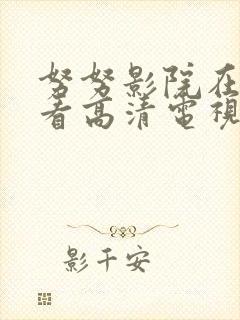 努努影院在
看高清電視
影千安